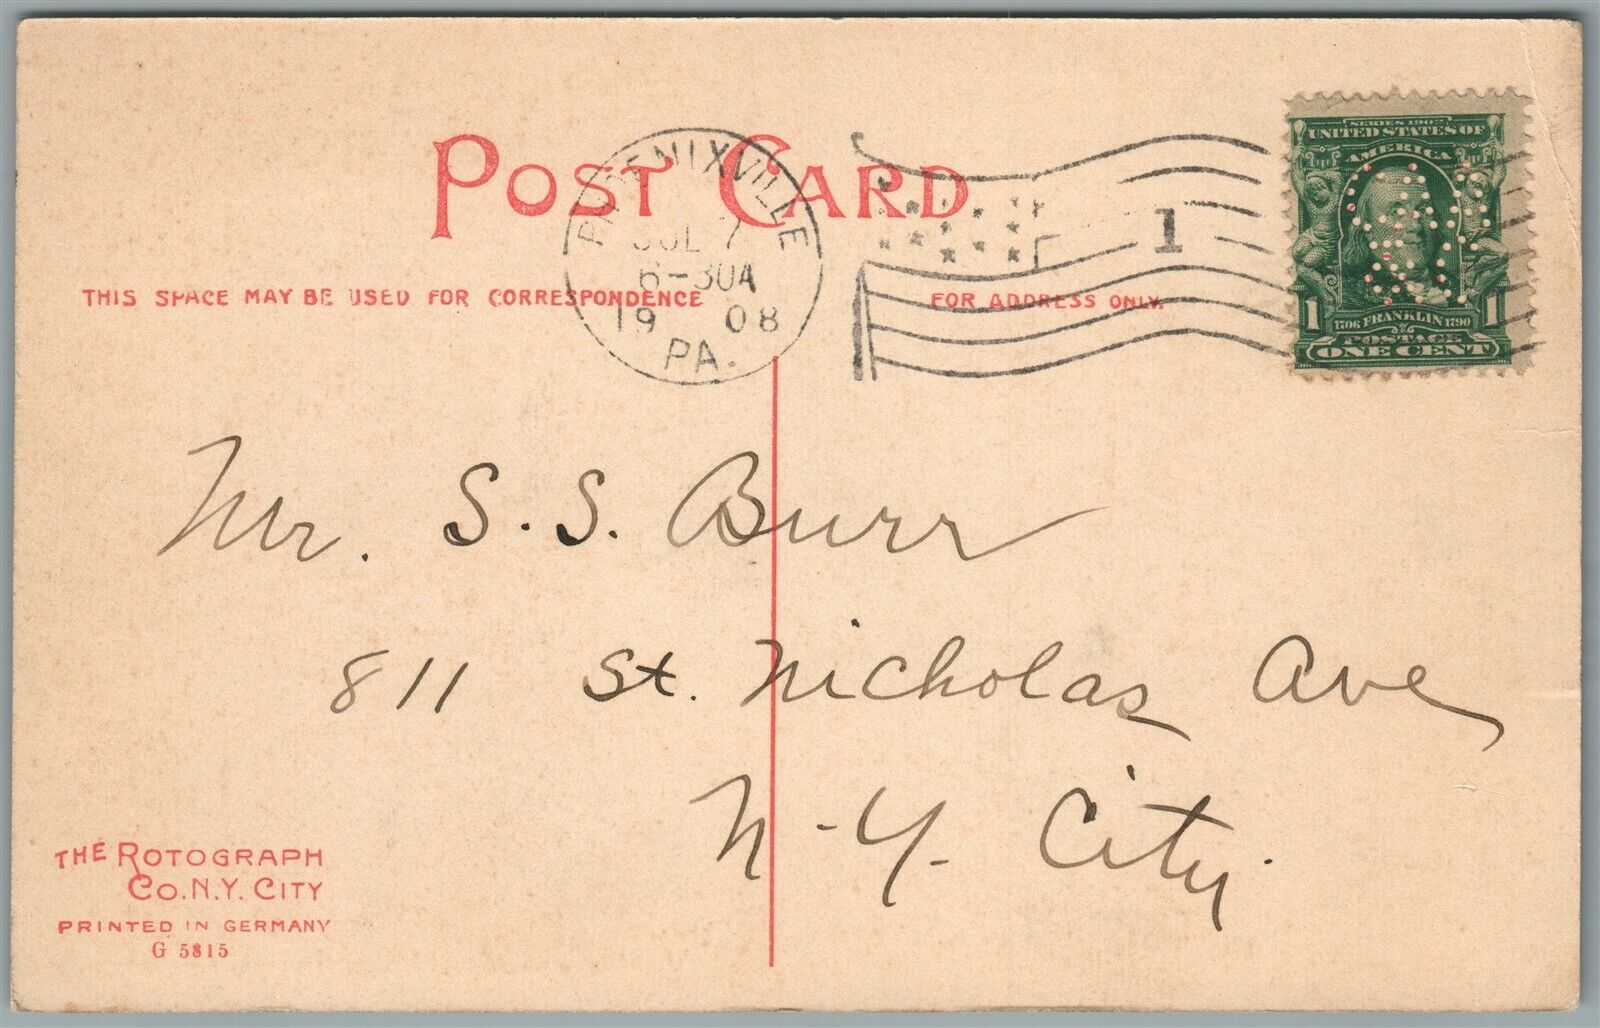 POST CARD
PHOENIXVILLE
JUL 7
6-30A
1908
PA.
1
SERIES 1902
UNITED STATES OF
AMERICA
1 1706 FRANKLIN 1790 1
POSTAGE
ONE CENT
THIS SPACE MAY BE USED FOR CORRESPONDENCE
FOR ADDRESS ONLY.
Mr. S. S. Burr
811 St. Nicholas Ave
N-Y. City.
THE ROTOGRAPH
CO. N.Y. CITY
PRINTED IN GERMANY
G 5815